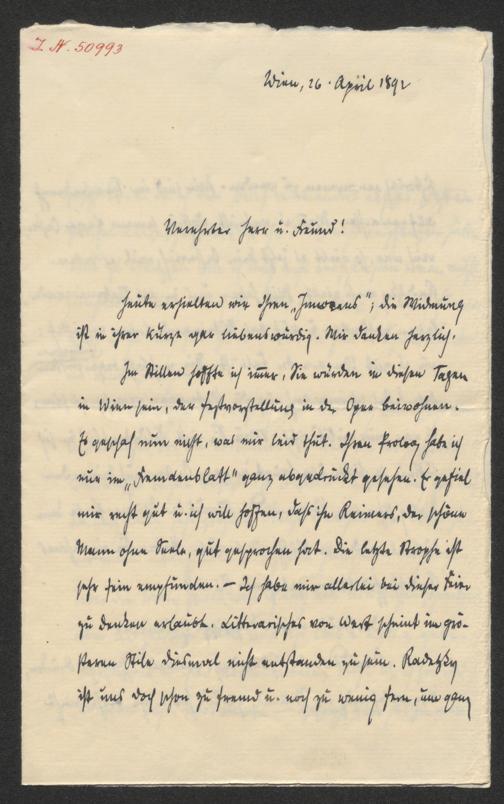 I. N. 50993
Wien, 26. April 1892
Verehrter Herr u. Freund!
Heute erhielten wir Ihren „Inmoxens"; die Widmung
ist in ihrer Kürze gar liebenswürdig. Wir danken herzlich.
Im Stillen hoffte ich immer, Sie würden in diesen Tagen
in Wien sein, der Festvorstellung in der Oper beiwohnen.
Es geschah nun nicht, was mir leid thut. Ihren Prolog habe ich
nur im „Fremdenblatt" ganz abgedruckt gesehen. Er gefiel
mir recht gut u. ich will hoffen, dass ihn Reimers, der schöne
Mann ohne Seele, gut gesprochen hat. Die letzte Strophe ist
sehr fein empfunden. — Ich habe mir allerlei bei dieser Feier
zu denken erlaubt. Litterarisches von Wert scheint im grö-
ßeren Stile diesmal nicht entstanden zu sein. Radetzky
ist uns doch schon zu fremd u. noch zu wenig fern, um ganz